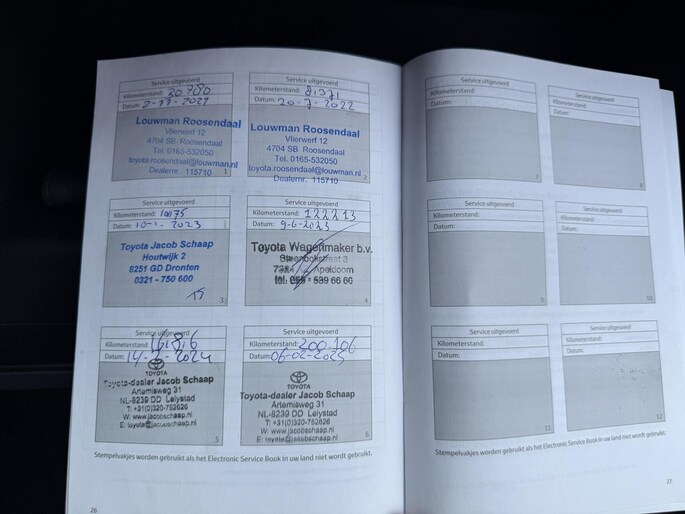 Service uitgevoerd
Kilometerstand: 30700
Datum: 2-11-2021
Louwman Roosendaal
Vlierwerf 12
4704 SB Roosendaal
Tel. 0165-532050
toyota.roosendaal@louwman.nl
Dealernr. 115710
1
Service uitgevoerd
Kilometerstand:
Datum: 20-7-2022
Louwman Roosendaal
Vlierwerf 12
4704 SB Roosendaal
Tel. 0165-532050
toyota.roosendaal@louwman.nl
Dealernr. 115710
2
Service uitgevoerd
Kilometerstand:
Datum: 10-1-2023
Toyota Jacob Schaap
Houtwijk 2
8251 GD Dronten
0321 - 750 600
3
Service uitgevoerd
Kilometerstand: 122213
Datum: 9-6-2023
Toyota Wagenmaker b.v.
Apeldoorn
tel. 055 - 539 66 60
4
Service uitgevoerd
Kilometerstand:
Datum: 2024
TOYOTA
Toyota-dealer Jacob Schaap
Artemisweg 31
NL-8239 DD Lelystad
T: +31(0)320-762626
W: www.jacobschaap.nl
E: toyota@jacobschaap.nl
5
Service uitgevoerd
Kilometerstand: 200.106
Datum: 06-02-2025
TOYOTA
Toyota-dealer Jacob Schaap
Artemisweg 31
NL-8239 DD Lelystad
T: +31(0)320-762626
W: www.jacobschaap.nl
E: toyota@jacobschaap.nl
6
Stempelvakjes worden gebruikt als het Electronic Service Book in uw land niet wordt gebruikt.
26
Service uitgevoerd
Kilometerstand:
Datum:
7
Service uitgevoerd
Kilometerstand:
Datum:
8
Service uitgevoerd
Kilometerstand:
Datum:
9
Service uitgevoerd
Kilometerstand:
Datum:
10
Service uitgevoerd
Kilometerstand:
Datum:
11
Service uitgevoerd
Kilometerstand:
Datum:
12
Stempelvakjes worden gebruikt als het Electronic Service Book in uw land niet wordt gebruikt.
27